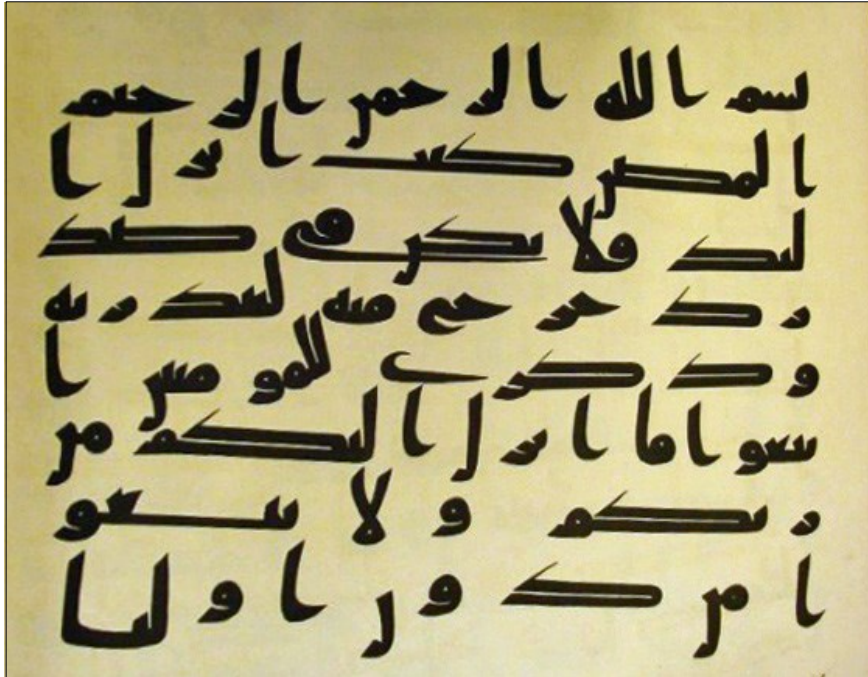 بسم الله الرحمن الرحيم
المص كتب انزل ا
ليك فلا يكن في صد
رك حرج منه لتنذر به
وذكرى للمومنين ا
تبعوا ما انزل اليكم من
ربكم ولا تتبعو
ا من دون اوليا